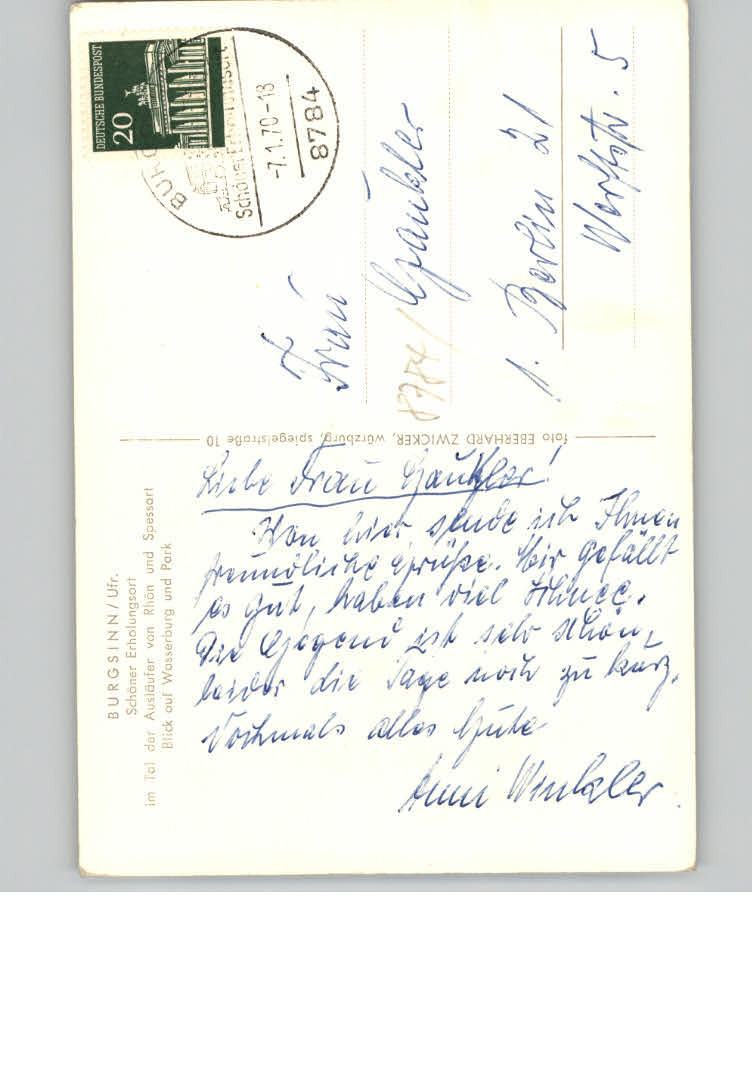 BURGSINN / Ufr.
Schöner Erholungsort
im Tal der Ausläufer von Rhön und Spessart
Blick auf Wasserburg und Park
foto EBERHARD ZWICKER, würzburg, spiegelstraße 10
DEUTSCHE BUNDESPOST
20
BURG
Schöner Erholungsort
-7.1.70-18
8784
Frau
Gaukler
8784/
1. Berlin 21
5
Liebe Frau Gaukler!
Von hier sende ich Ihnen
freundliche Grüße. Mir gefällt
es gut, haben viel Schnee.
Die Gegend ist sehr schön,
leider die Tage noch zu kurz.
Nochmals alles Gute
Anni Winkler